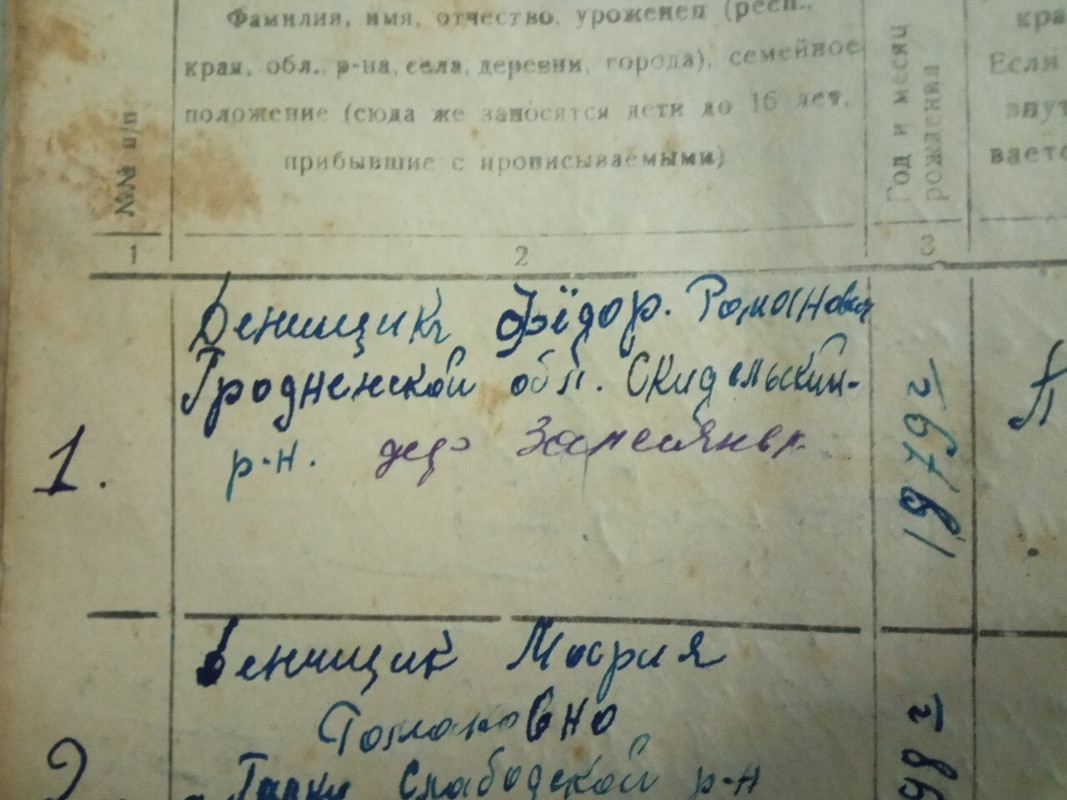 №№ п/п
Фамилия, имя, отчество, уроженец (респ.,
края, обл., р-на, села, деревни, города), семейное
положение (сюда же заносятся дети до 16 лет,
прибывшие с прописываемыми)
Год и месяц
рождения
кра
Если
внут
вает
1
2
3
1.
Денищик Фёдор. Романович
Гродненской обл. Скидельский-
р-н. дер
2.
Денищик Мария
но
Слабодской р-н